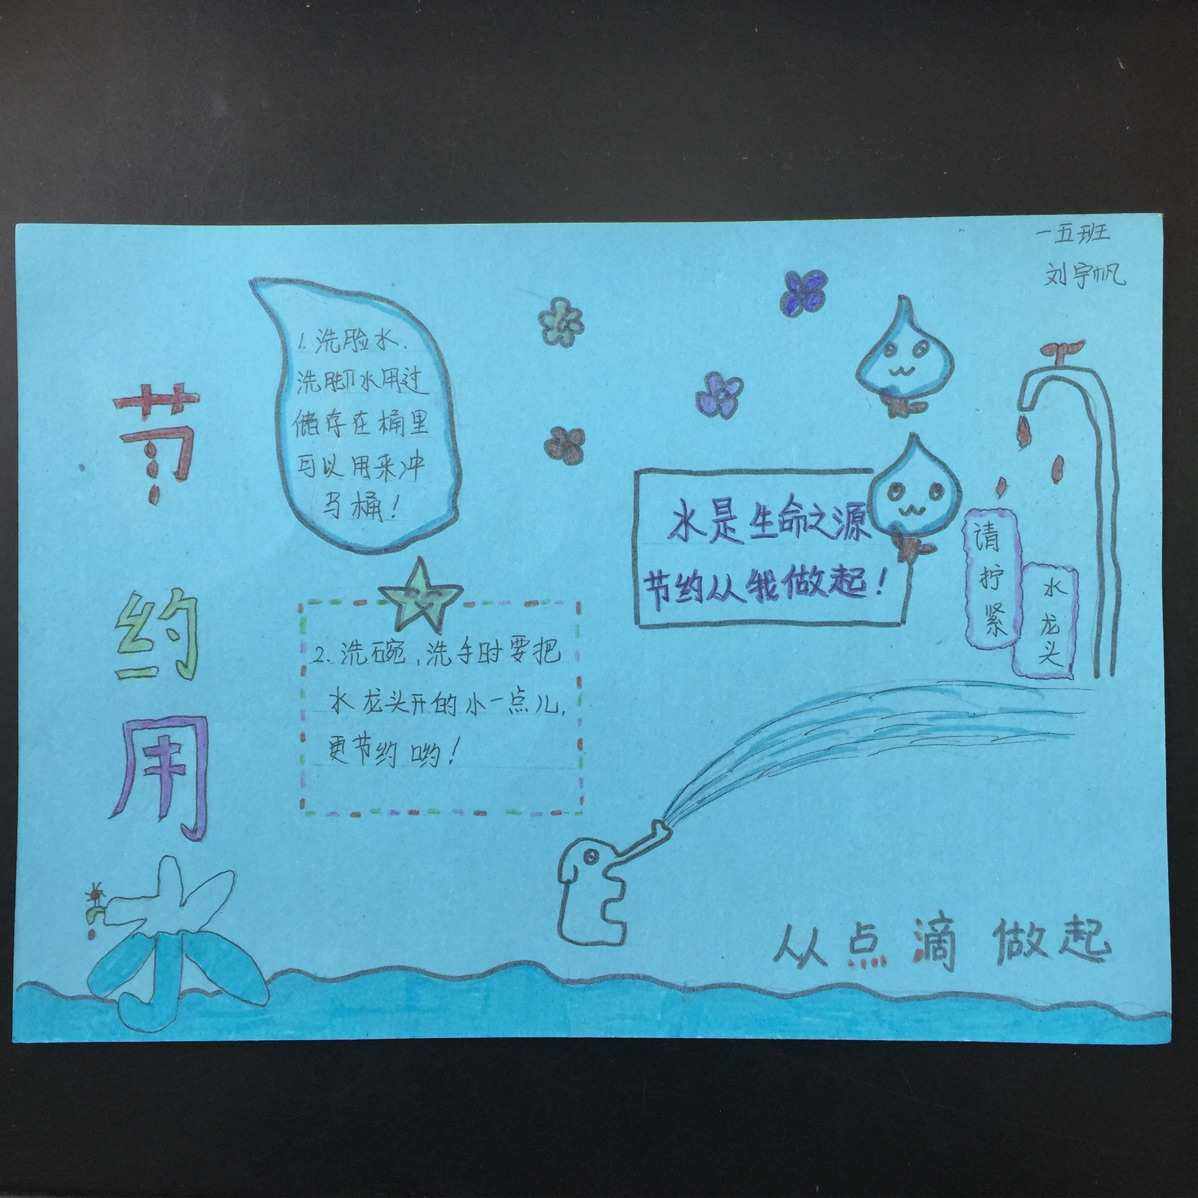 一五班
刘宇帆
节约用水
1.洗脸水.
洗脚水用过
储存在桶里
可以用来冲
马桶！
2.洗碗,洗手时要把
水龙头开的小一点儿,
更节约哟！
水是生命之源
节约从我做起！
请拧紧
水龙头
从点滴做起